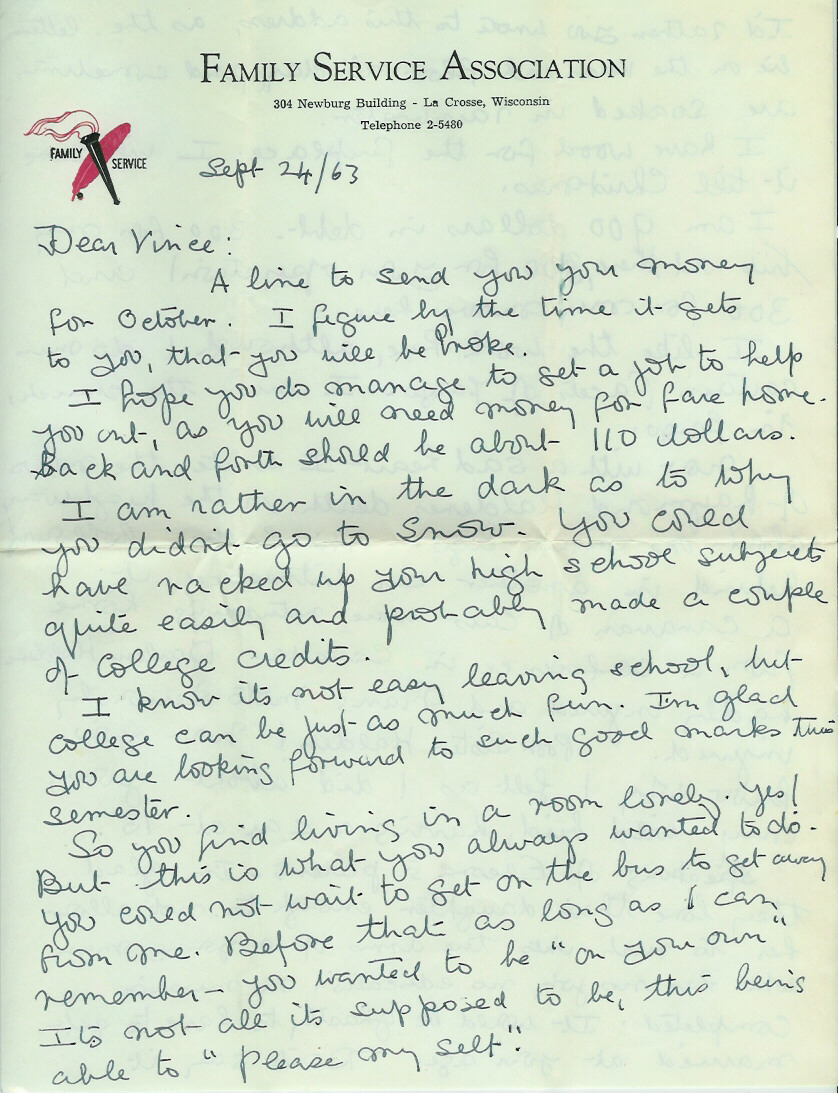 FAMILY SERVICE ASSOCIATION
304 Newburg Building - La Crosse, Wisconsin
Telephone 2-5480
FAMILY SERVICE
Sept 24/63
Dear Vince:
A line to send you you money
for October. I figure by the time it gets
to you, that you will be broke.
I hope you do manage to get a job to help
you out, as you will need money for fare home.
Back and forth should be about 110 dollars.
I am rather in the dark as to why
you didn't go to Snow. You could
have racked up your high school subjects
quite easily and probably made a couple
of College credits.
I know its not easy leaving school, but
College can be just as much fun. I'm glad
you are looking forward to such good marks this
semester.
So you find living in a room lonely. Yes!
But this is what you always wanted to do.
you could not wait to get on the bus to get away
from me. Before that as long as I can
remember - you wanted to be "on your own"
Its not all its supposed to be, this being
able to "please my self".